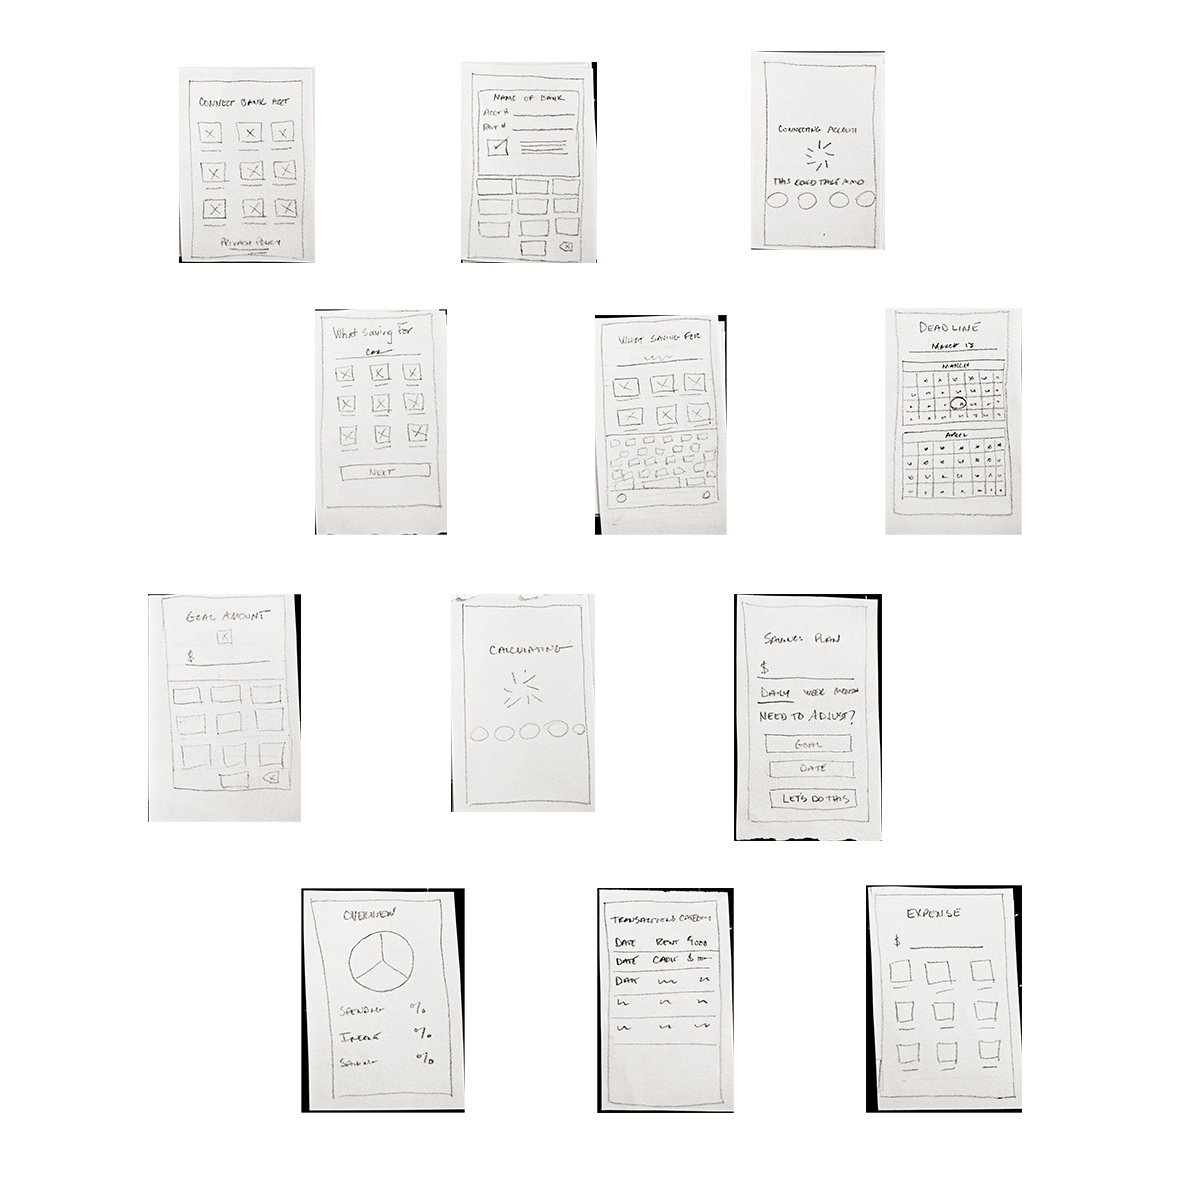 CONNECT BANK ACCT
PRIVACY POLICY
NAME OF BANK
ACCT #
ROUT #
CONNECTING ACCOUNT
THIS COULD TAKE A
What Saving For
CAR
NEXT
WHAT SAVING FOR
DEADLINE
MARCH 18
MARCH
APRIL
GOAL AMOUNT
$
CALCULATING
SAVINGS PLAN
$
DAILY WEEK MONTH
NEED TO ADJUST?
GOAL
DATE
LET'S DO THIS
OVERVIEW
SPENDING %
INCOME %
SAVING %
TRANSACTIONS
DATE RENT
DATE $
DATE
EXPENSE
$